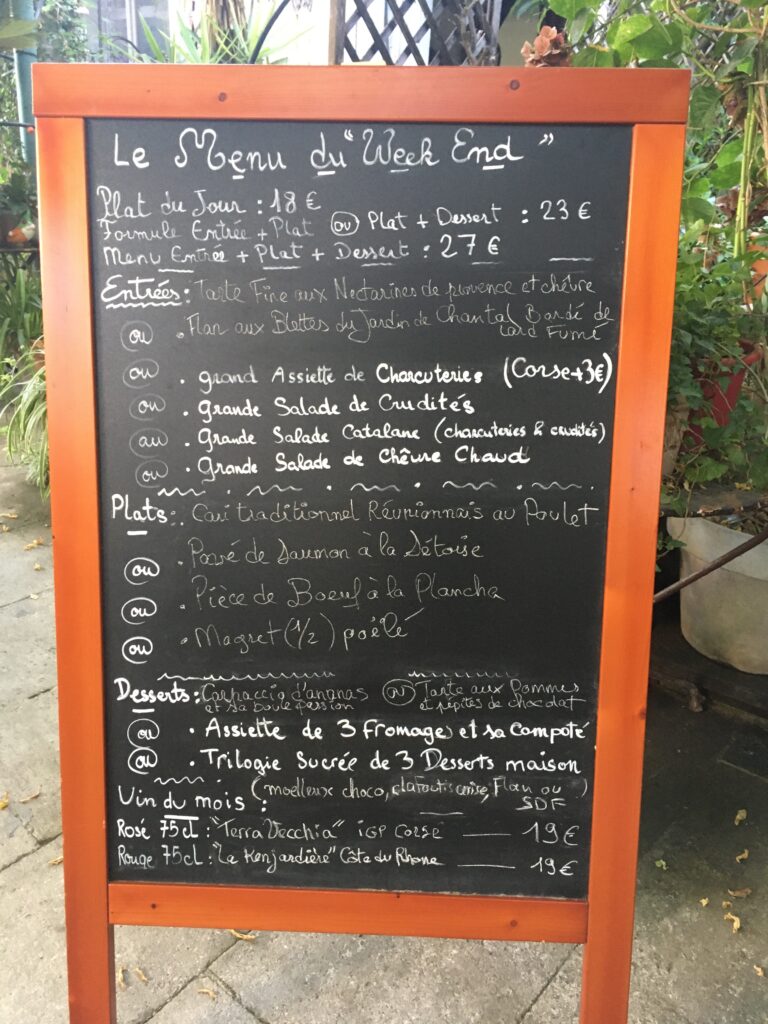 Le Menu du "Week End"
Plat du Jour : 18 €
Formule Entrée + Plat ou Plat + Dessert : 23 €
Menu Entrée + Plat + Dessert : 27 €
Entrées : Tarte Fine aux Nectarines de provence et chèvre
ou . Flan aux Blettes du Jardin de Chantal Bardé de
Lard Fumé
ou . grand Assiette de Charcuteries (Corse+3€)
ou . grande Salade de Crudités
au . Grande Salade Catalane (charcuteries & crudités)
ou . Grande Salade de Chêvre Chaud
Plats : . Cari traditionnel Réunionnais au Poulet
ou . Pavé de Saumon à la Sétoise
ou . Pièce de Boeuf à la Plancha
ou . Magret (1/2) poêlé
Desserts : Carpaccio d'ananas ou Tarte aux Pommes
et sa boule passion et pépites de chocolat
ou . Assiette de 3 fromages et sa Compoté
au . Trilogie Sucrée de 3 Desserts maison
(moelleux choco, clafoutis cerise, Flan ou
SDF)
Vin du mois :
Rosé 75cl : "Terra Vecchia" iGP Corse — 19€
Rouge 75cl : "La Kenjardière" Côte du Rhone — 19€